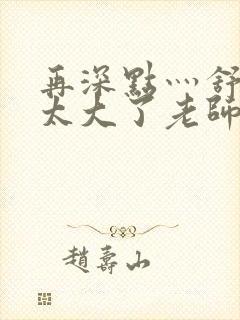 再深點灬舒
太大了老師
趙壽山